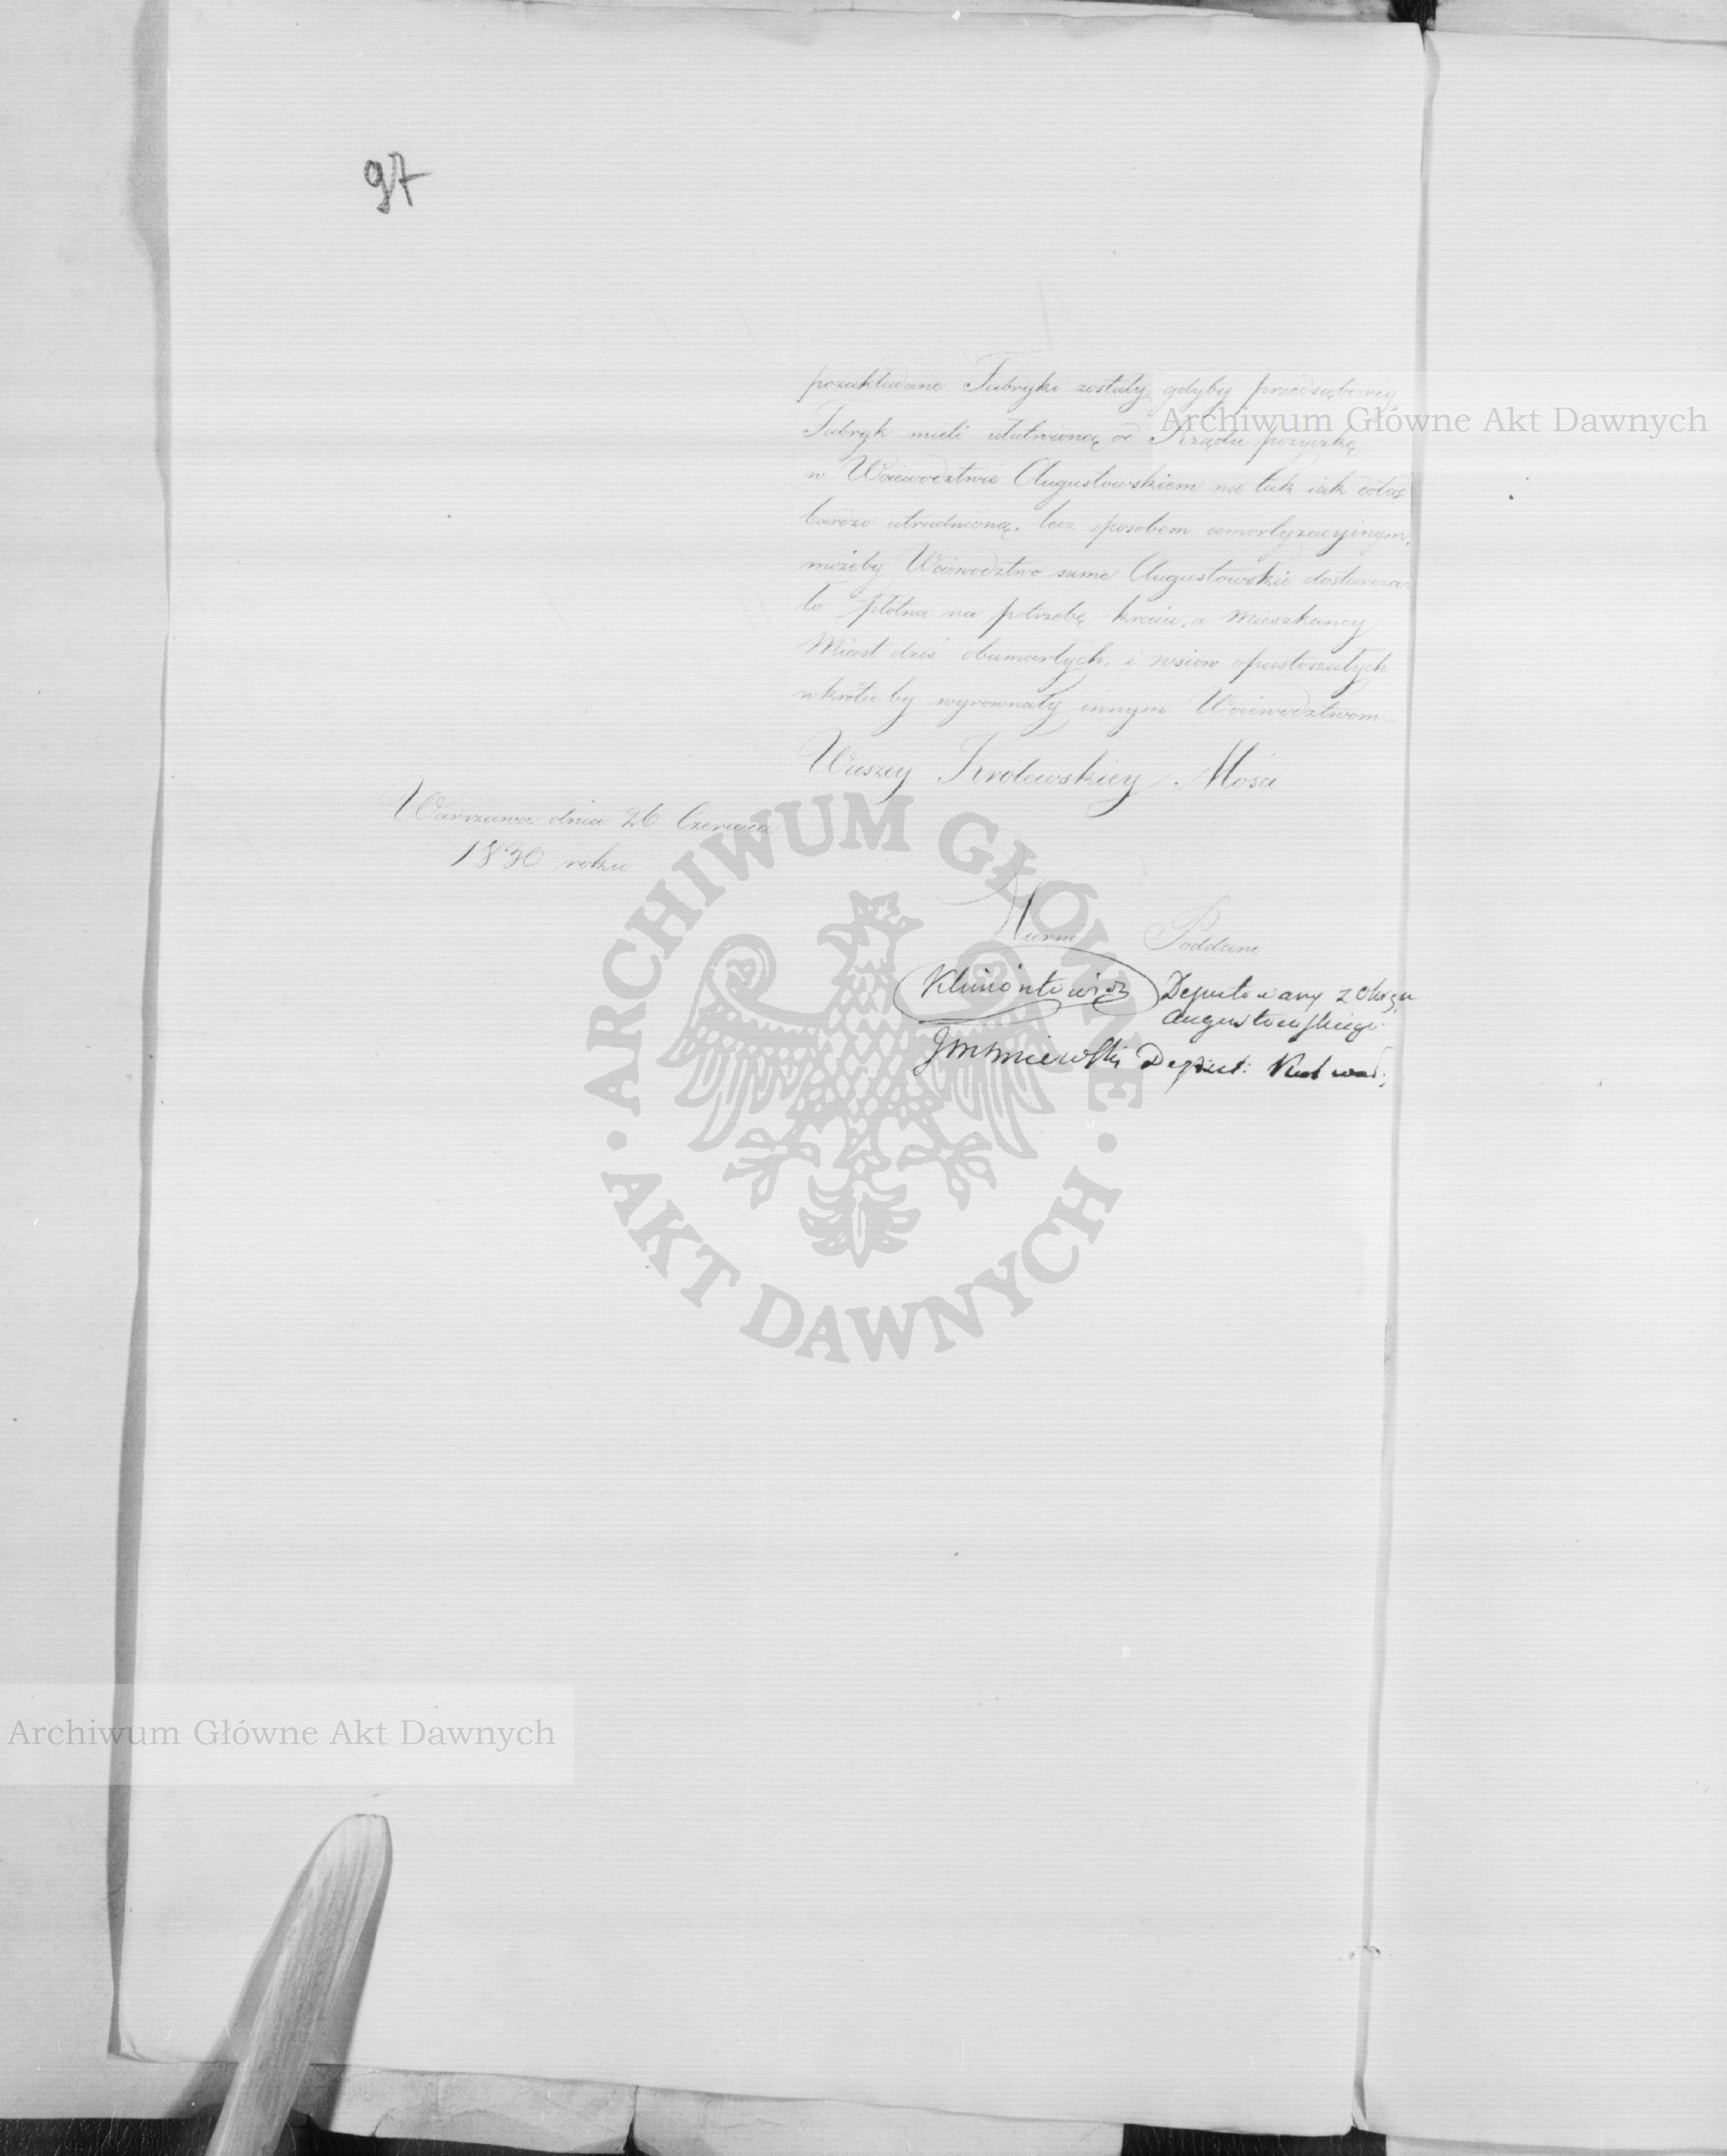 97
pozakładane Fabryki zostały, gdyby przedsiębiercy
Fabryk mieli ułatwioną od Rządu pożyczkę
w Woiewodztwie Augustowskiem nie tak iak dotąd
bardzo utrudnioną, lecz sposobem amortyzacyinym,
możeby Woiewodztwo same Augustowskie dostarcza=
ło płótna na potrzebę kraiu, a mieszkancy
Miast dziś obumarłych, i wsiow opustoszałych
wkrótce by wyrownały innym Woiewodztwom
Waszey Krolewskiey Mości
Warszawa dnia 26 Czerwca
1830 roku
Wierni Poddani
Klimontowicz Deputowany z Okręgu
Augustowskiego
Deput:
Archiwum Główne Akt Dawnych
ARCHIWUM GŁÓWNE
AKT DAWNYCH
Archiwum Główne Akt Dawnych